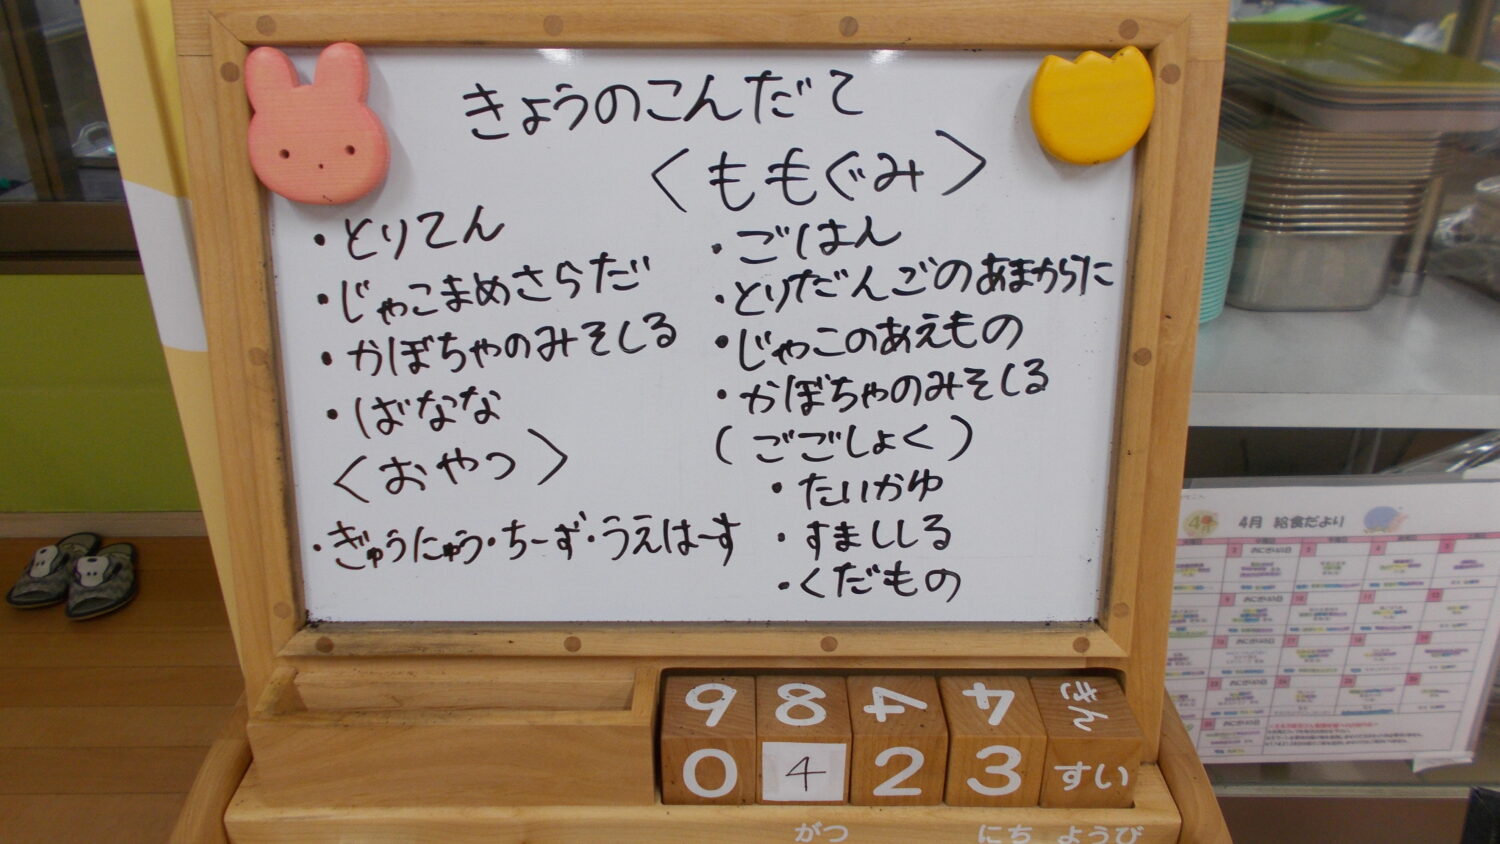 きょうのこんだて
・とりてん
・じゃこまめさらだ
・かぼちゃのみそしる
・ばなな
〈おやつ〉
・ぎゅうにゅう・ちーず・うえはーす
〈ももぐみ〉
・ごはん
・とりだんごのあまからに
・じゃこのあえもの
・かぼちゃのみそしる
(ごごしょく)
・たいかゆ
・すまししる
・くだもの
9 8 4 4 きん
0 4 2 3 すい
がつ にち ようび
4月 給食だより